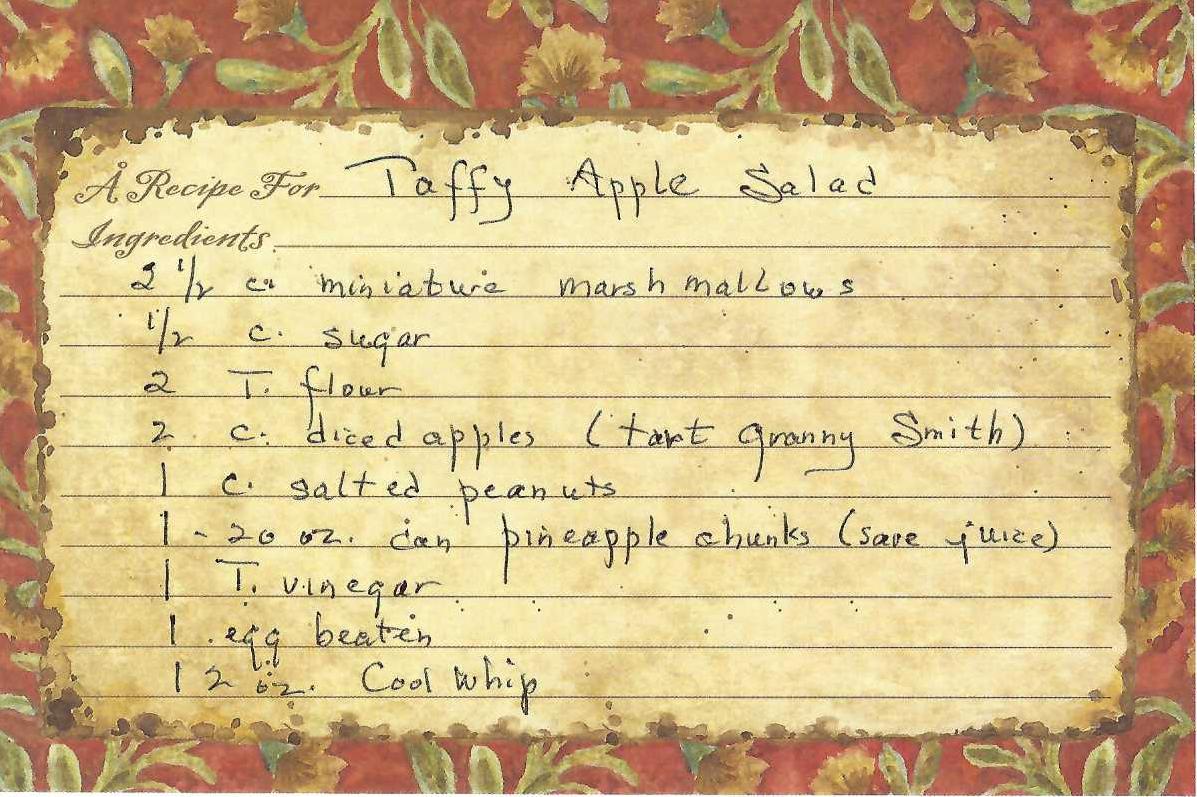 A Recipe For Taffy Apple Salad
Ingredients
2 1/2 c. miniature marshmallows
1/2 c. sugar
2 T. flour
2 c. diced apples (tart granny Smith)
1 c. salted peanuts
1 - 20 oz. can pineapple chunks (save juice)
1 T. vinegar
1 egg beaten
12 oz. Cool Whip